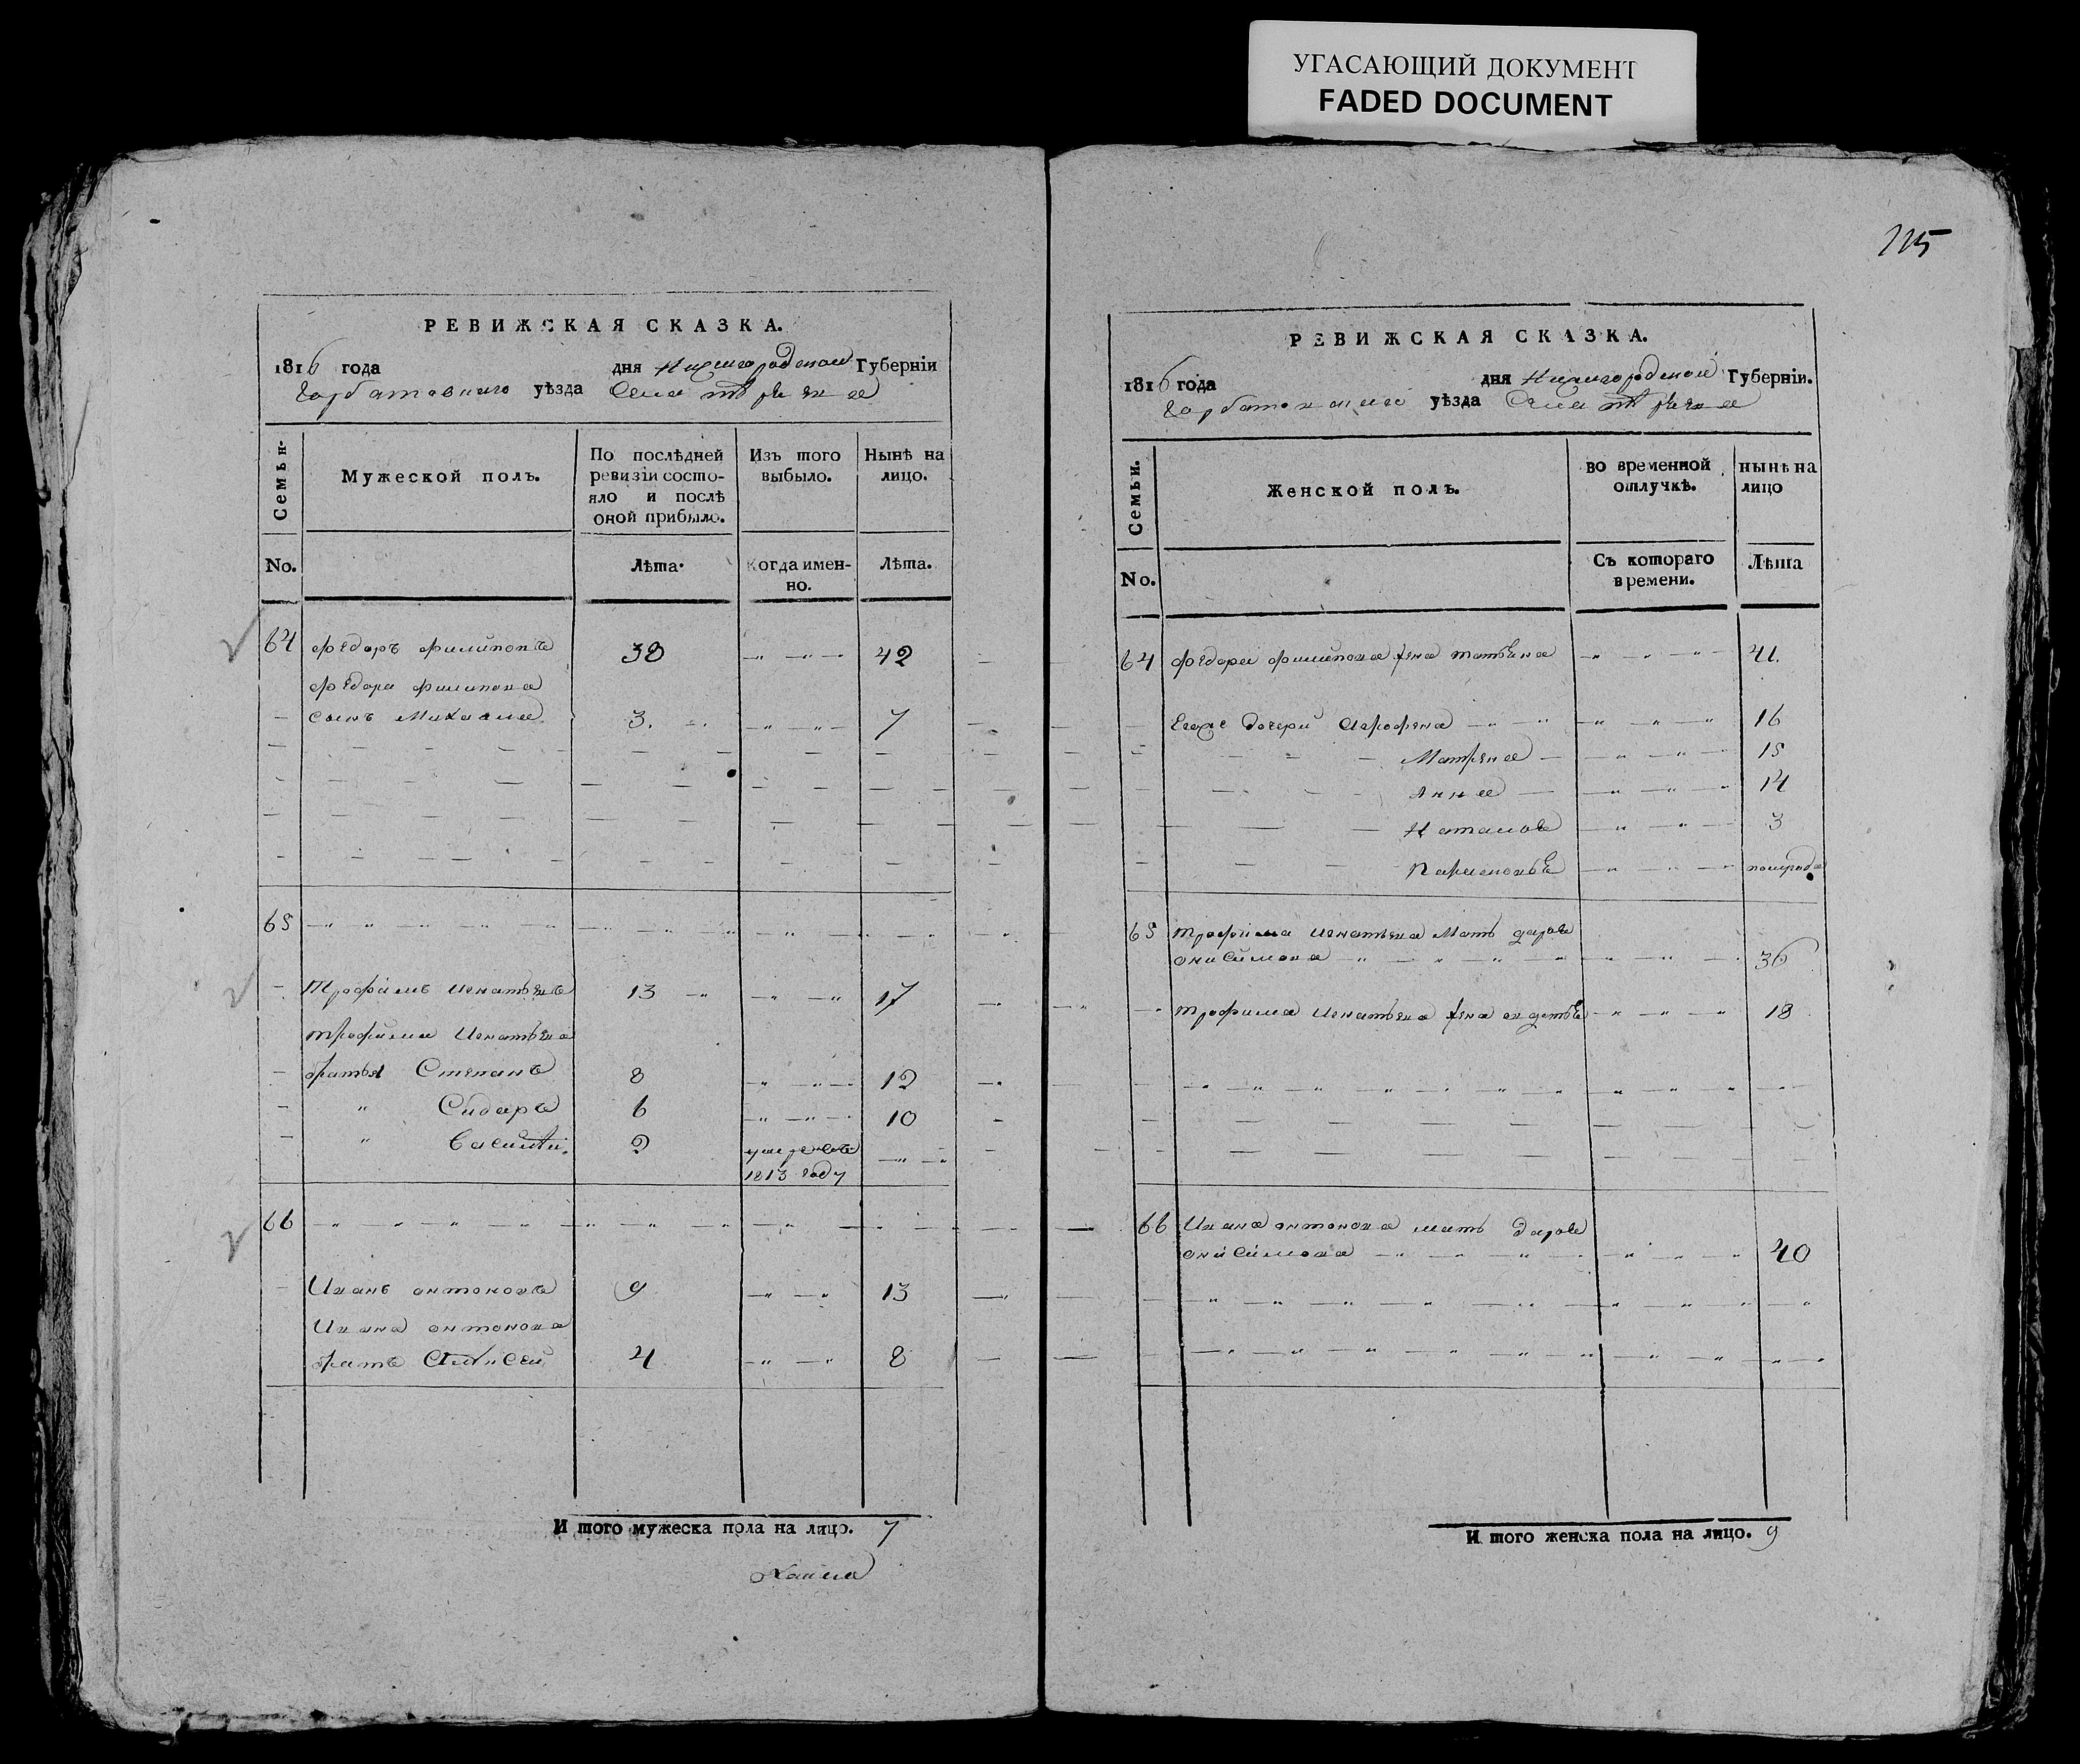 УГАСАЮЩИЙ ДОКУМЕНТ
FADED DOCUMENT
РЕВИЖСКАЯ СКАЗКА.
1816 года дня Нижегородской Губерніи
Горбатовскаго уѣзда Села
Семьи
Мужеской полъ.
По послѣдней ревизіи состояло и послѣ оной прибыло.
Изъ того выбыло.
Нынѣ на лицо.
No.
Лѣта.
Когда именно.
Лѣта.
64 Федоръ Филиповъ 38 42
Федора Филипова
сынъ Михаила 3. 7
65
Трофимъ Игнатьевъ 13 17
Трофима Игнатьева
братья Степанъ 8 12
Сидоръ 6 10
Василѣй. 2 умре въ
1813 году
66
Иванъ онтоновъ 9 13
Ивана онтонова
братъ 4 8
И того мужеска пола на лицо. 7
115
РЕВИЖСКАЯ СКАЗКА.
1816 года дня Нижегородской Губерніи.
Горбатовскаго уѣзда Села
Семьи.
Женской полъ.
во временной отлучкѣ.
нынѣ на лицо
No.
Съ котораго времени.
Лѣта
64 Федора Филипова жена 41.
Егоже дочери Аграфена 16
Матрена 15
Анна 14
Наталья 3
Парасковья полгода
65 Трофима Игнатьева Мать дарья
онисимова 36
Трофима Игнатьева жена 18
66 Ивана онтонова мать дарья
онисимова 40
И того женска пола на лицо. 9